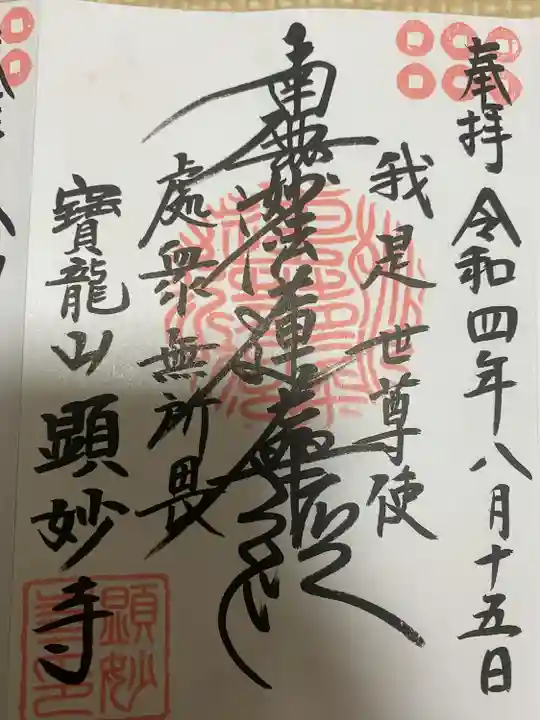 奉拝 令和四年八月十五日
我是世尊使
南無妙法蓮華経
處衆無所畏
寶龍山 顕妙寺
顕妙
寺印